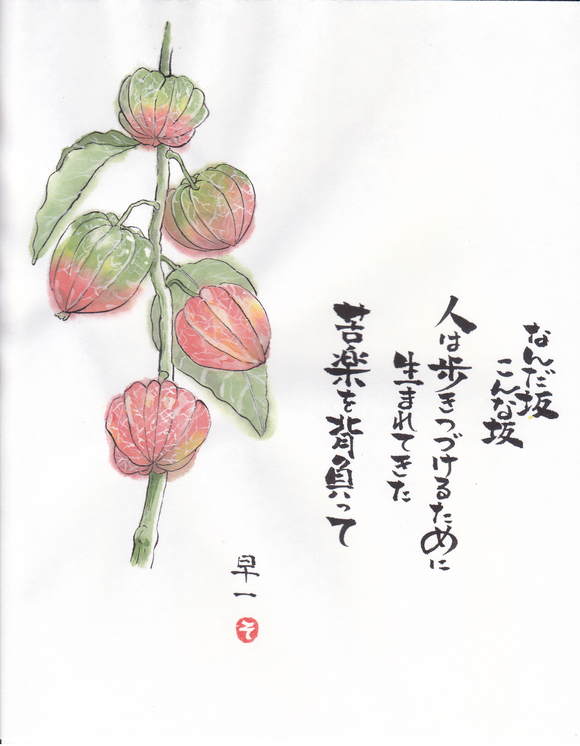 なんだ坂
こんな坂
人は歩きつづけるために
生まれてきた
苦楽を背負って
早一
そ